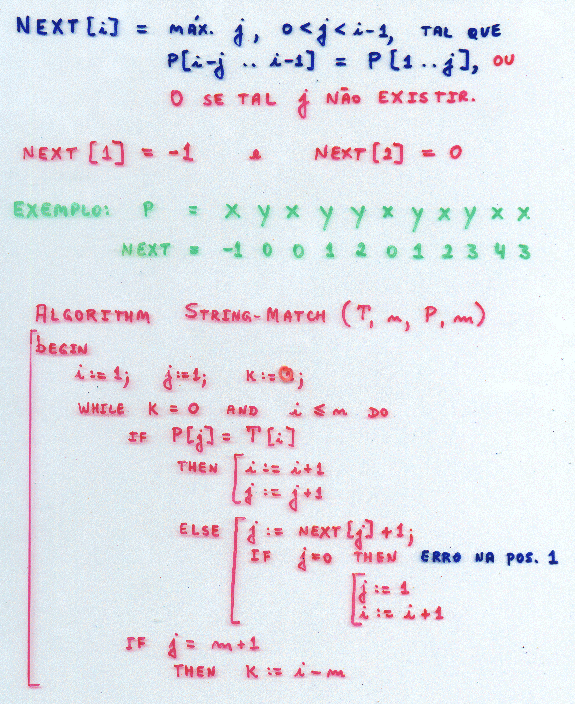 NEXT[i] = MÁX. j, 0<j<i-1, TAL QUE
P[i-j .. i-1] = P[1..j], OU
0 SE TAL j NÃO EXISTIR.
NEXT[1] = -1 e NEXT[2] = 0
EXEMPLO: P = X Y X Y Y X Y X Y X X
NEXT = -1 0 0 1 2 0 1 2 3 4 3
ALGORITHM STRING-MATCH (T, n, P, m)
BEGIN
i := 1; j := 1; K := 0;
WHILE K = 0 AND i ≤ n DO
IF P[j] = T[i]
THEN i := i+1
j := j+1
ELSE j := NEXT[j]+1;
IF j=0 THEN ERRO NA POS. 1
j := 1
i := i+1
IF j = m+1
THEN K := i-m